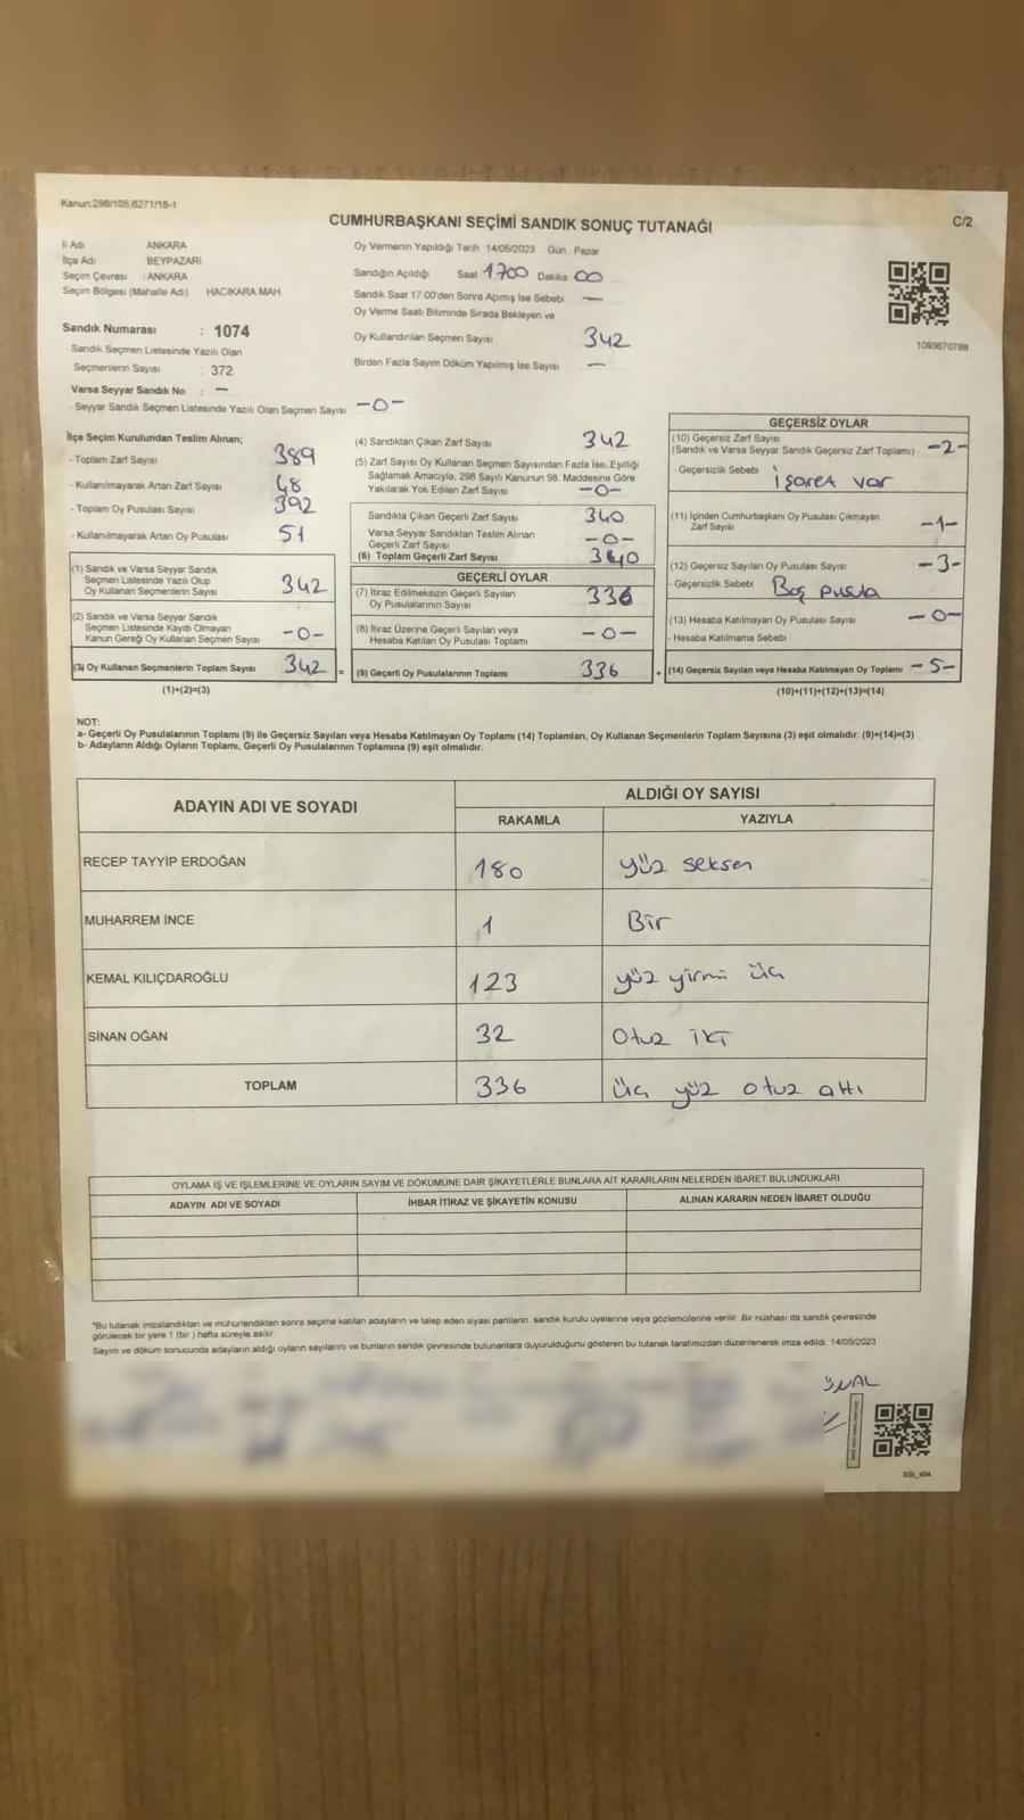 Kanun:298/105,6271/18-1
CUMHURBAŞKANI SEÇİMİ SANDIK SONUÇ TUTANAĞI
C/2
İl Adı ANKARA
İlçe Adı BEYPAZARI
Seçim Çevresi : ANKARA
Seçim Bölgesi (Mahalle Adı) HACIKARA MAH
Sandık Numarası : 1074
Sandık Seçmen Listesinde Yazılı Olan
Seçmenlerin Sayısı : 372
Varsa Seyyar Sandık No : —
Seyyar Sandık Seçmen Listesinde Yazılı Olan Seçmen Sayısı -0-
Oy Vermenin Yapıldığı Tarih 14/05/2023 Gün : Pazar
Sandığın Açıldığı Saat 1700 Dakika 00
Sandık Saat 17.00'den Sonra Açılmış İse Sebebi —
Oy Verme Saati Bitiminde Sırada Bekleyen ve
Oy Kullandırılan Seçmen Sayısı 342
Birden Fazla Sayım Döküm Yapılmış İse Sayısı —
1093670788
İlçe Seçim Kurulundan Teslim Alınan;
- Toplam Zarf Sayısı 389
- Kullanılmayarak Artan Zarf Sayısı 48
- Toplam Oy Pusulası Sayısı 392
- Kullanılmayarak Artan Oy Pusulası 51
(1) Sandık ve Varsa Seyyar Sandık
Seçmen Listesinde Yazılı Olup
Oy Kullanan Seçmenlerin Sayısı 342
(2) Sandık ve Varsa Seyyar Sandık
Seçmen Listesinde Kaydı Olmayan
Kanun Gereği Oy Kullanan Seçmen Sayısı -0-
(3) Oy Kullanan Seçmenlerin Toplam Sayısı 342 =
(1)+(2)=(3)
(4) Sandıktan Çıkan Zarf Sayısı 342
(5) Zarf Sayısı Oy Kullanan Seçmen Sayısından Fazla İse, Eşitliği
Sağlamak Amacıyla, 298 Sayılı Kanunun 98. Maddesine Göre
Yakılarak Yok Edilen Zarf Sayısı -0-
Sandıkta Çıkan Geçerli Zarf Sayısı 340
Varsa Seyyar Sandıktan Teslim Alınan
Geçerli Zarf Sayısı -0-
(6) Toplam Geçerli Zarf Sayısı 340
GEÇERLİ OYLAR
(7) İtiraz Edilmeksizin Geçerli Sayılan
Oy Pusulalarının Sayısı 336
(8) İtiraz Üzerine Geçerli Sayılan veya
Hesaba Katılan Oy Pusulası Toplamı -0-
(9) Geçerli Oy Pusulalarının Toplamı 336 +
GEÇERSİZ OYLAR
(10) Geçersiz Zarf Sayısı
(Sandık ve Varsa Seyyar Sandık Geçersiz Zarf Toplamı) -2-
- Geçersizlik Sebebi işaret var
(11) İçinden Cumhurbaşkanı Oy Pusulası Çıkmayan
Zarf Sayısı -1-
(12) Geçersiz Sayılan Oy Pusulası Sayısı -3-
- Geçersizlik Sebebi Boş pusula
(13) Hesaba Katılmayan Oy Pusulası Sayısı -0-
- Hesaba Katılmama Sebebi
(14) Geçersiz Sayılan veya Hesaba Katılmayan Oy Toplamı -5-
(10)+(11)+(12)+(13)=(14)
NOT:
a- Geçerli Oy Pusulalarının Toplamı (9) ile Geçersiz Sayılan veya Hesaba Katılmayan Oy Toplamı (14) Toplamları, Oy Kullanan Seçmenlerin Toplam Sayısına (3) eşit olmalıdır. (9)+(14)=(3)
b- Adayların Aldığı Oyların Toplamı, Geçerli Oy Pusulalarının Toplamına (9) eşit olmalıdır.
ADAYIN ADI VE SOYADI
ALDIĞI OY SAYISI
RAKAMLA YAZIYLA
RECEP TAYYİP ERDOĞAN 180 yüz seksen
MUHARREM İNCE 1 Bir
KEMAL KILIÇDAROĞLU 123 yüz yirmi üç
SİNAN OĞAN 32 Otuz iki
TOPLAM 336 üç yüz otuz altı
OYLAMA İŞ VE İŞLEMLERİNE VE OYLARIN SAYIM VE DÖKÜMÜNE DAİR ŞİKAYETLERLE BUNLARA AİT KARARLARIN NELERDEN İBARET BULUNDUKLARI
ADAYIN ADI VE SOYADI İHBAR İTİRAZ VE ŞİKAYETİN KONUSU ALINAN KARARIN NEDEN İBARET OLDUĞU
*Bu tutanak imzalandıktan ve mühürlendikten sonra seçime katılan adayların ve talep eden siyasi partilerin, sandık kurulu üyelerine veya gözlemcilerine verilir. Bir nüshası da sandık çevresinde
görülecek bir yere 1 (bir ) hafta süreyle asılır.
Sayım ve döküm sonucunda adayların aldığı oyların sayılarını ve bunların sandık çevresinde bulunanlara duyurulduğunu gösteren bu tutanak tarafımızdan düzenlenerek imza edildi. 14/05/2023
ÜNAL